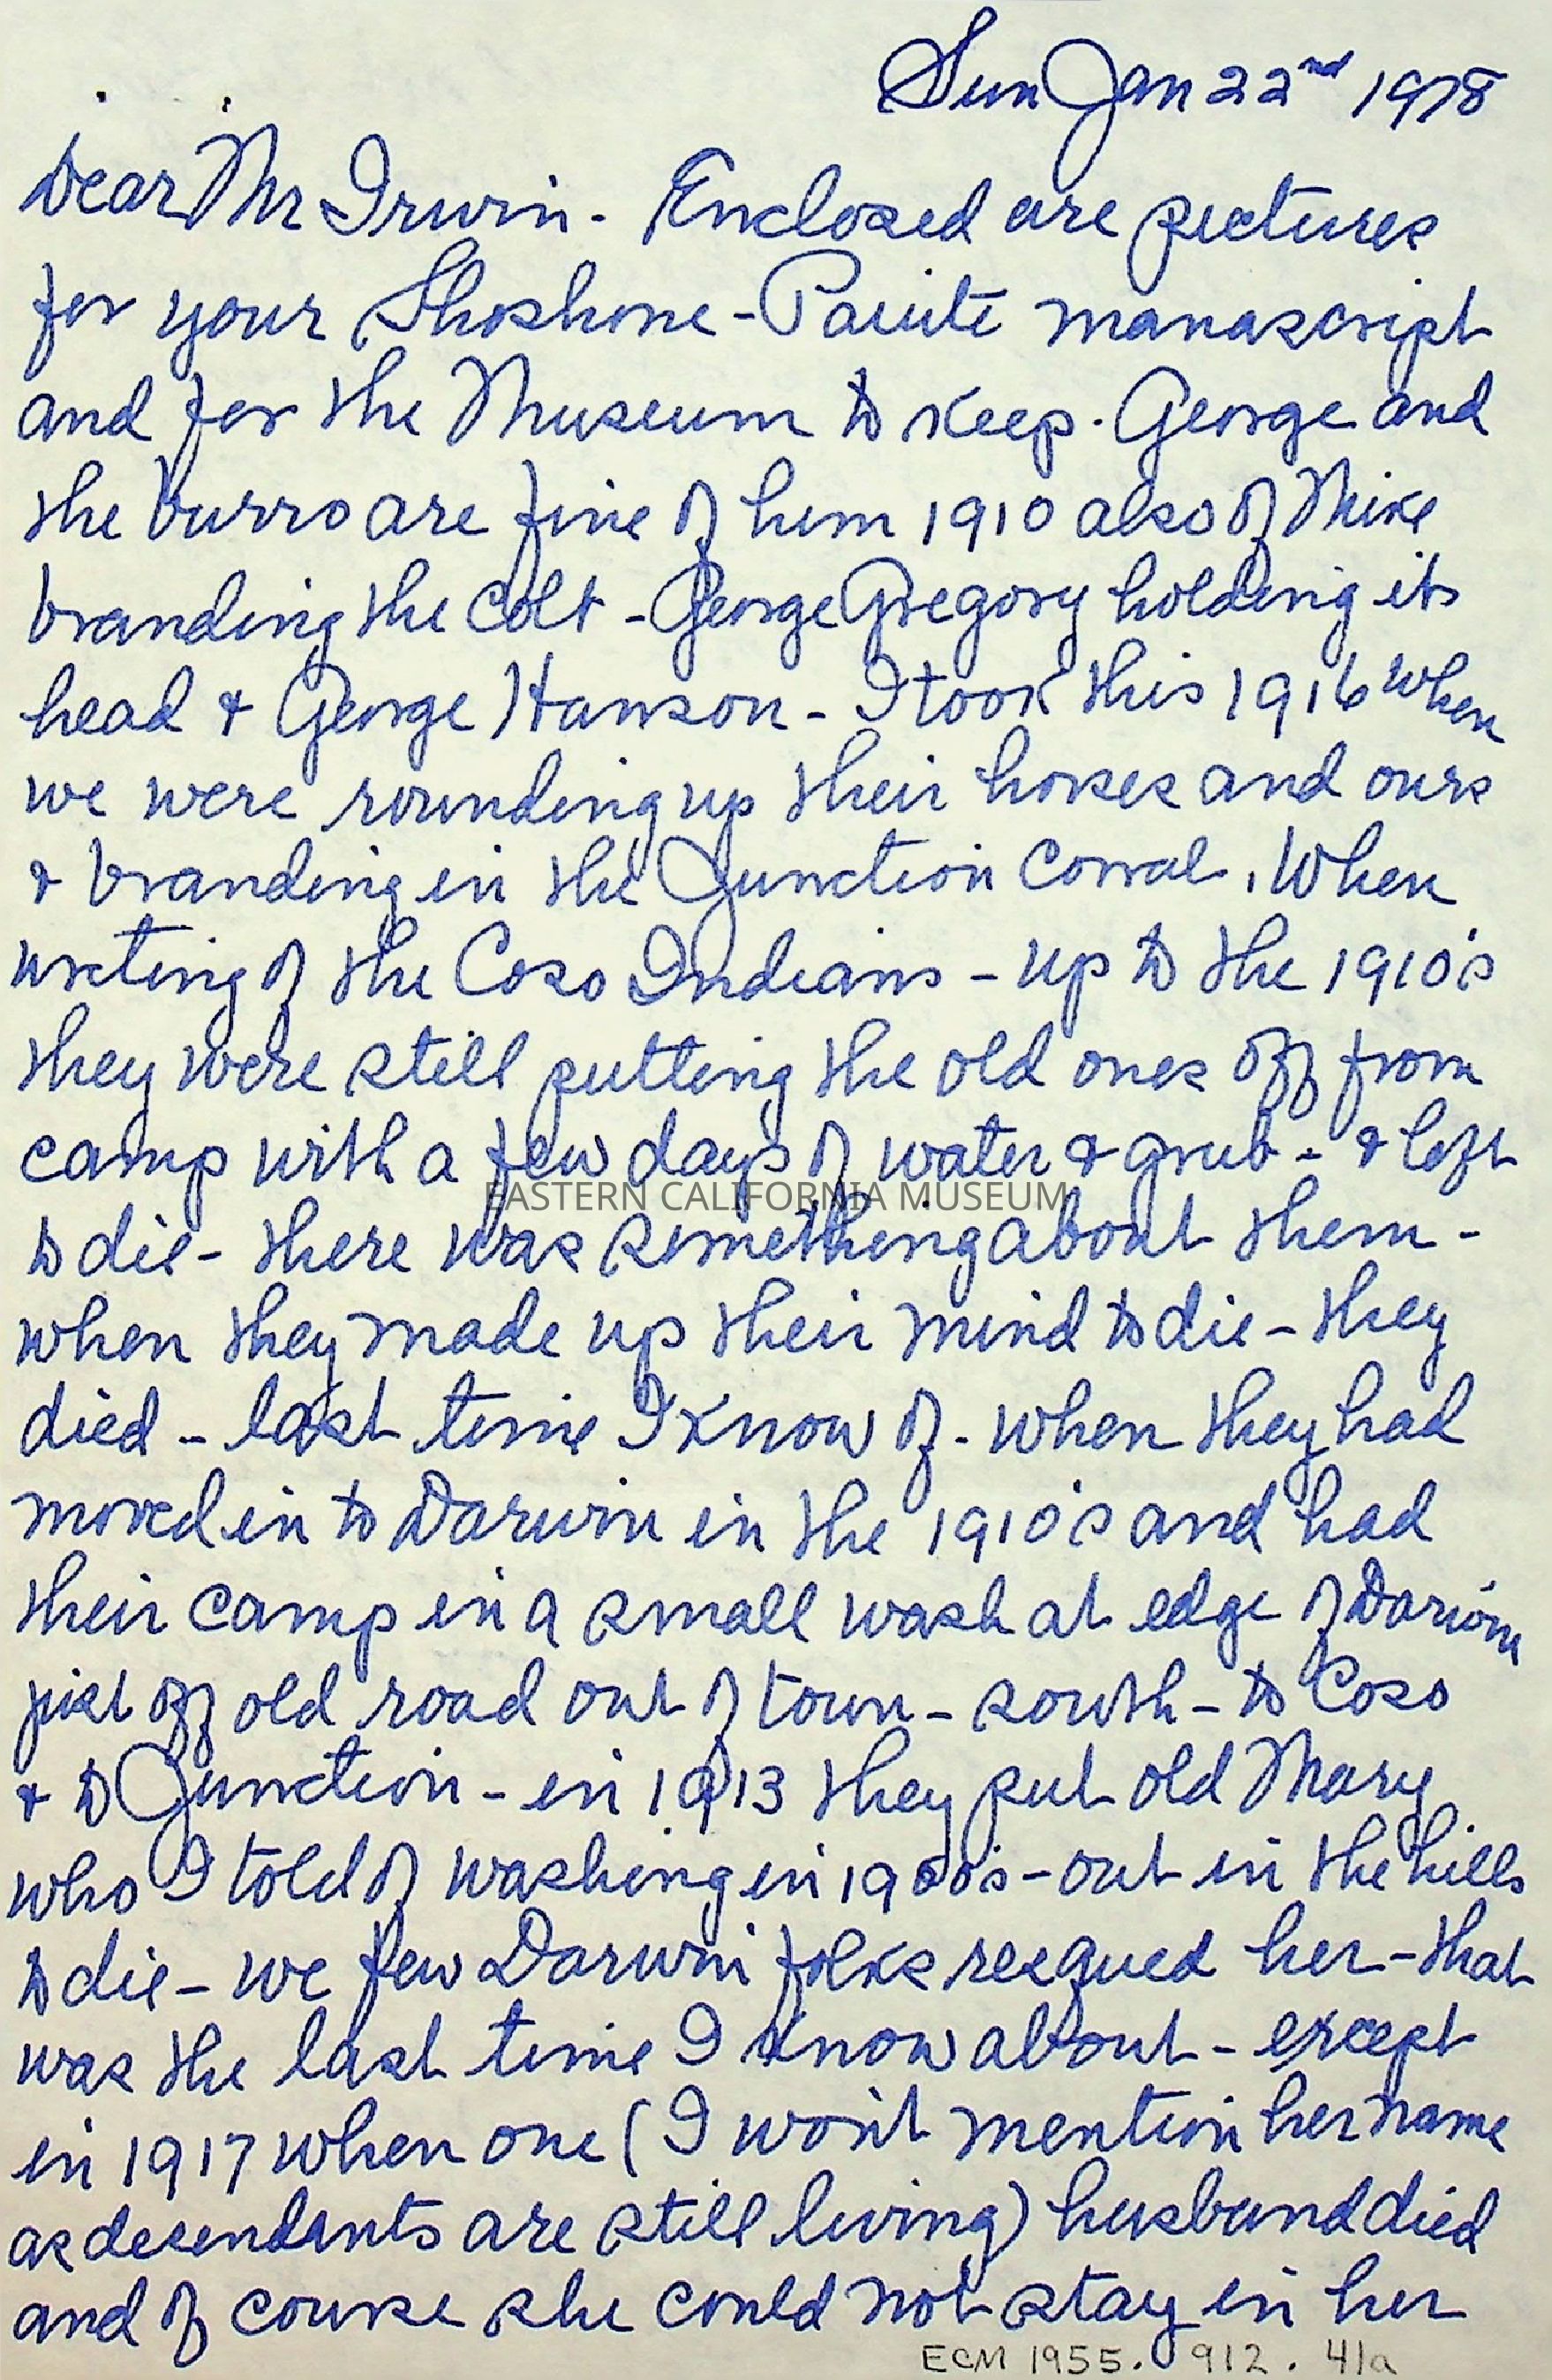 Sun Jan 22nd 1978
Dear Mr Irwin - Enclosed are pictures
for your Shoshone - Paiute manascript
and for the Museum to keep. George and
the burro are fine of him 1910 also of Mike
branding the colt - George Gregory holding its
head & George Hanson - I took this 1916 when
we were rounding up their horses and ours
& branding in the Junction Corral. When
writing of the Coso Indians - up to the 1910's
they were still putting the old ones off from
camp with a few days of water & grub - & left
EASTERN CALIFORNIA MUSEUM
to die - there was something about them -
when they made up their mind to die - they
died - last time I know of - when they had
moved in to Darwin in the 1910's and had
their camp in a small wash at edge of Darwin
just off old road out of town - south - to Coso
& to Junction - in 1913 they put old Mary
who I told of washing in 1900's - out in the hills
to die - we few Darwin folks resqued her - that
was the last time I know about - except
in 1917 when one (I won't mention her name
as desendants are still living) husband died
and of course she could not stay in her
ECM 1955. 912. 41a